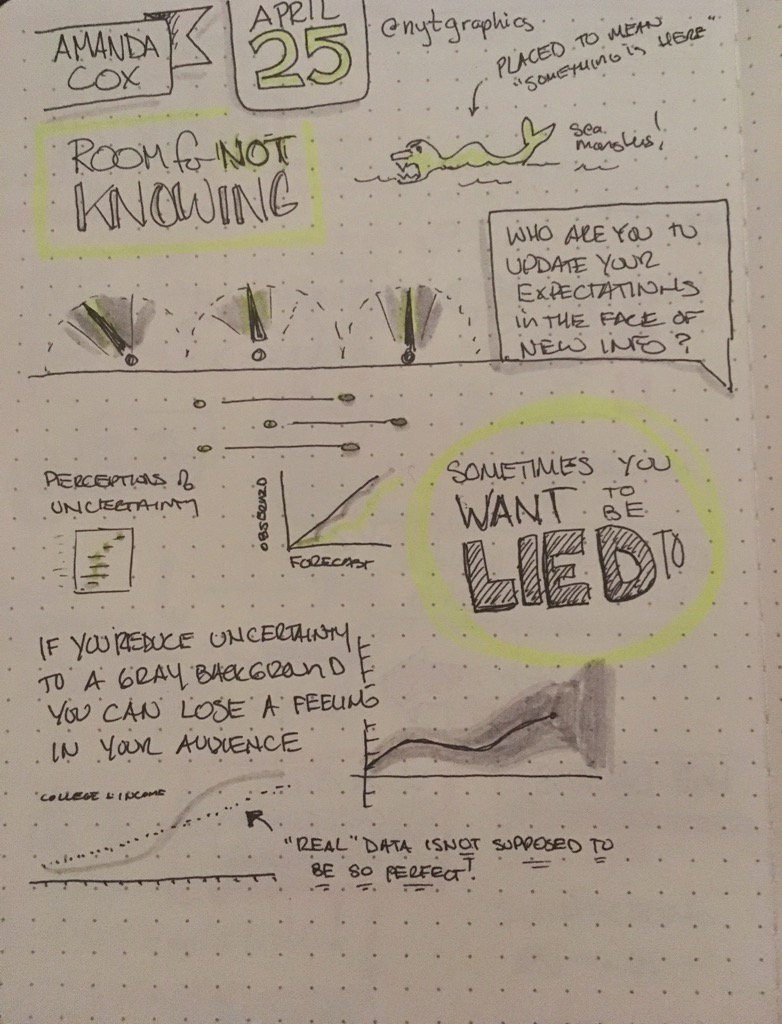 AMANDA
COX
APRIL
25
@nytgraphics
PLACED TO MEAN
"SOMETHING IS HERE"
sea
monsters!
ROOM for NOT
KNOWING
WHO ARE YOU TO
UPDATE YOUR
EXPECTATIONS
in THE FACE OF
NEW INFO?
PERCEPTIONS of
UNCERTAINTY
OBSERVED
FORECAST
SOMETIMES YOU
WANT TO BE
LIED TO
IF YOU REDUCE UNCERTAINTY
TO A GRAY BACKGROUND
YOU CAN LOSE A FEELING
IN YOUR AUDIENCE
COLLEGE & INCOME
"REAL" DATA IS NOT SUPPOSED TO
BE SO PERFECT!